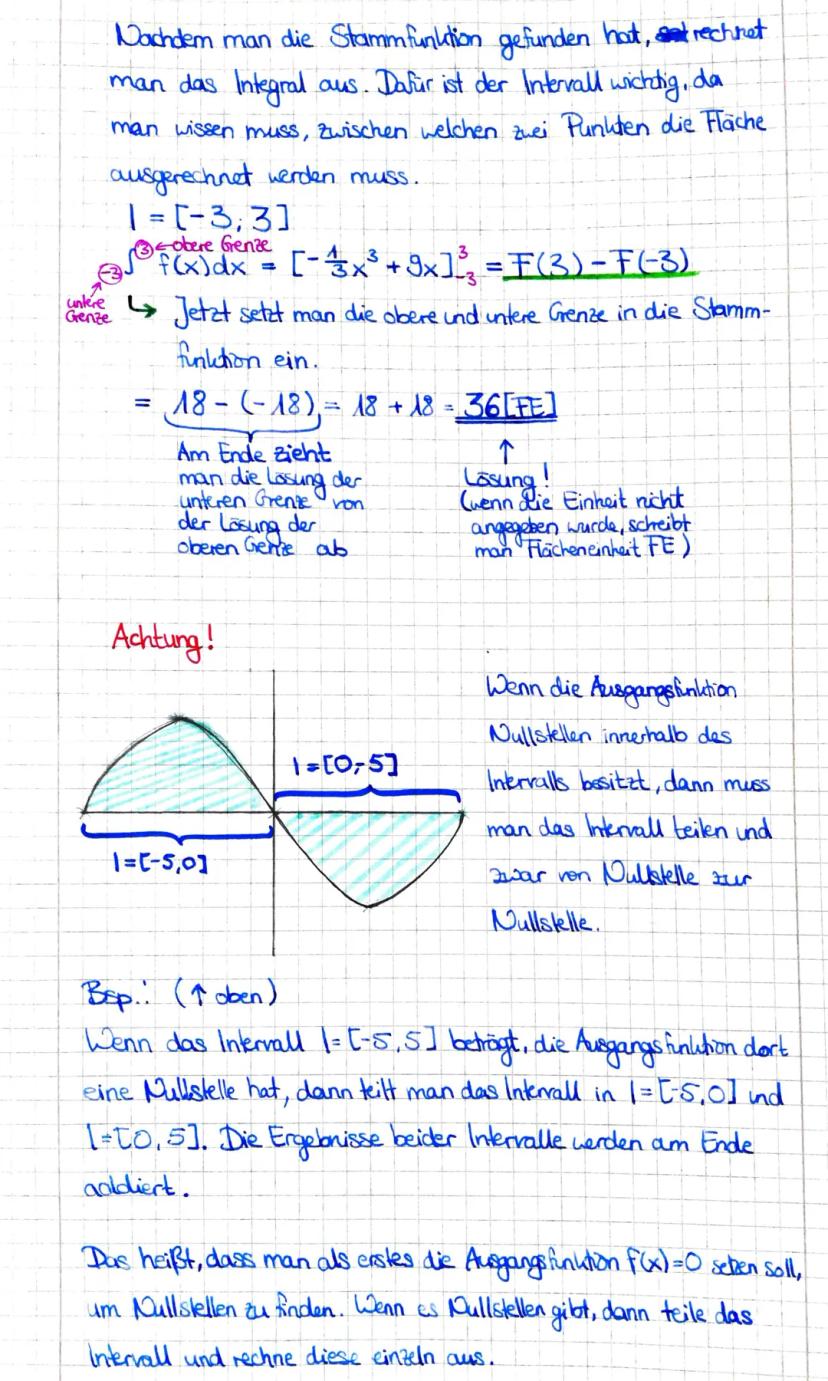 Nachdem man die Stammfunktion gefunden hat, rechnet
man das Integral aus. Dafür ist der Intervall wichtig, da
man wissen muss, zwischen welchen zwei Punkten die Fläche
ausgerechnet werden muss.
I = [-3; 3]
3 ← obere Grenze
-3∫ f(x)dx = [-1/3x³ + 9x]³₋₃ = F(3) - F(-3)
untere
Grenze
↳ Jetzt setzt man die obere und untere Grenze in die Stamm-
funktion ein.
= 18 - (-18) = 18 + 18 = 36[FE]
Am Ende zieht
man die Lösung der
unteren Grenze von
der Lösung der
oberen Genze ab
↑
Lösung!
(wenn die Einheit nicht
angegeben wurde, schreibt
man Flächeneinheit FE)
Achtung!
I=[0,-5]
I=[-5,0]
Wenn die Ausgangsfunktion
Nullstellen innerhalb des
Intervalls besitzt, dann muss
man das Intervall teilen und
zwar von Nullstelle zur
Nullstelle.
Bsp.: (↑ oben)
Wenn das Intervall I=[-5,5] beträgt, die Ausgangsfunktion dort
eine Nullstelle hat, dann teilt man das Intervall in I=[-5,0] und
I=[0,5]. Die Ergebnisse beider Intervalle werden am Ende
addiert.
Das heißt, dass man als erstes die Ausgangsfunktion f(x)=0 setzen soll,
um Nullstellen zu finden. Wenn es Nullstellen gibt, dann teile das
Intervall und rechne diese einzeln aus.